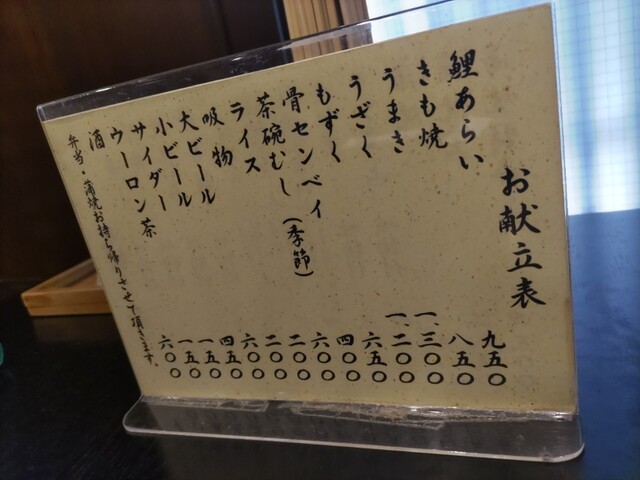 お献立表
鯉あらい 九五〇
きも焼 八五〇
うまき 一、三〇〇
うざく 一、二〇〇
もずく 六五〇
骨センベイ 四〇〇
茶碗むし(季節) 六〇〇
ライス 二〇〇
吸物 二〇〇
大ビール 六〇〇
小ビール 四五〇
サイダー 一五〇
ウーロン茶 一五〇
酒 六〇〇
弁当・蒲焼お持ち帰りさせて頂きます。